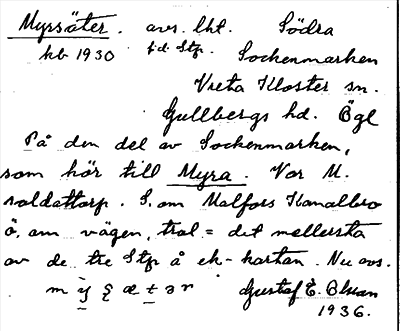 Myrsäter. avs. lht. Södra
kb 1930 f.d. Stp. Sockenmarken
Vreta Kloster sn.
Gullbergs hd. Ögl
På den del av Sockenmarken,
som hör till Myra. Var M.
soldattorp. S. om Malfors Kanalbro
ö. om vägen, trol = det mellersta
av de tre Stp å ek-kartan. Nu avs.
Gustaf E. Blman
1936.